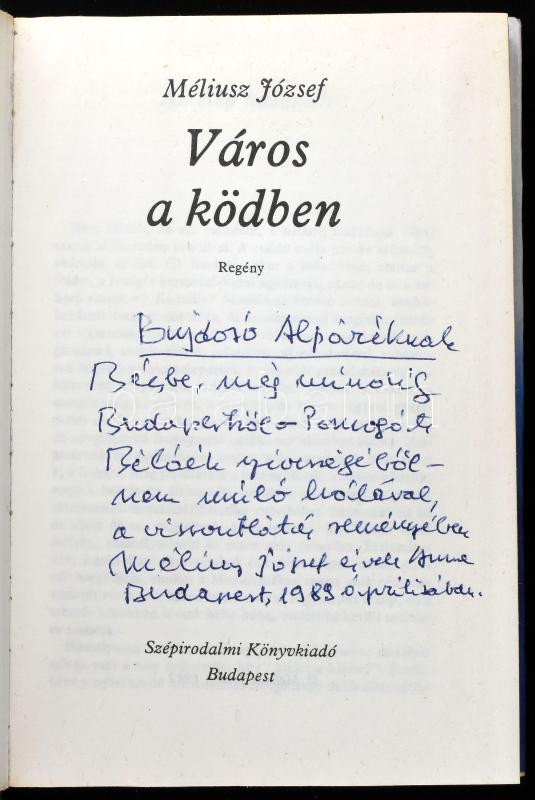 Méliusz József
Város
a ködben
Regény
Bujdosó Alpáréknak
Bécsbe, még mindig
Budapestről – Pomogáts
Béláék szívességéből –
nem múló hálával,
a viszontlátás reményében
Méliusz József és Anna
Budapest, 1989 áprilisában.
Szépirodalmi Könyvkiadó
Budapest